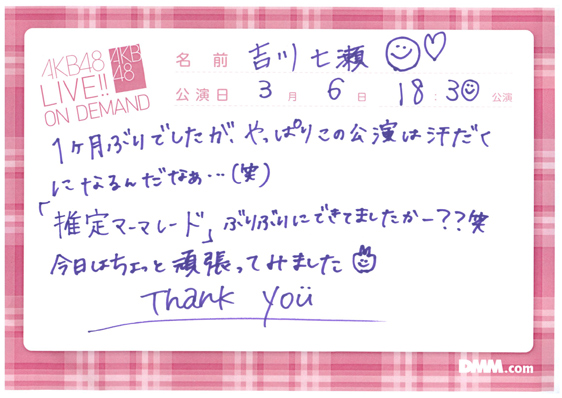 AKB48
LIVE!!
ON DEMAND
AKB
48
名前 吉川七瀬
公演日 3月6日 18:30公演
1ヶ月ぶりでしたが、やっぱりこの公演は汗だく
になるんだなぁ…(笑)
「推定マーマレード」ぶりぶりにできてましたかー??笑
今日はちょっと頑張ってみました
Thank you
DMM.com